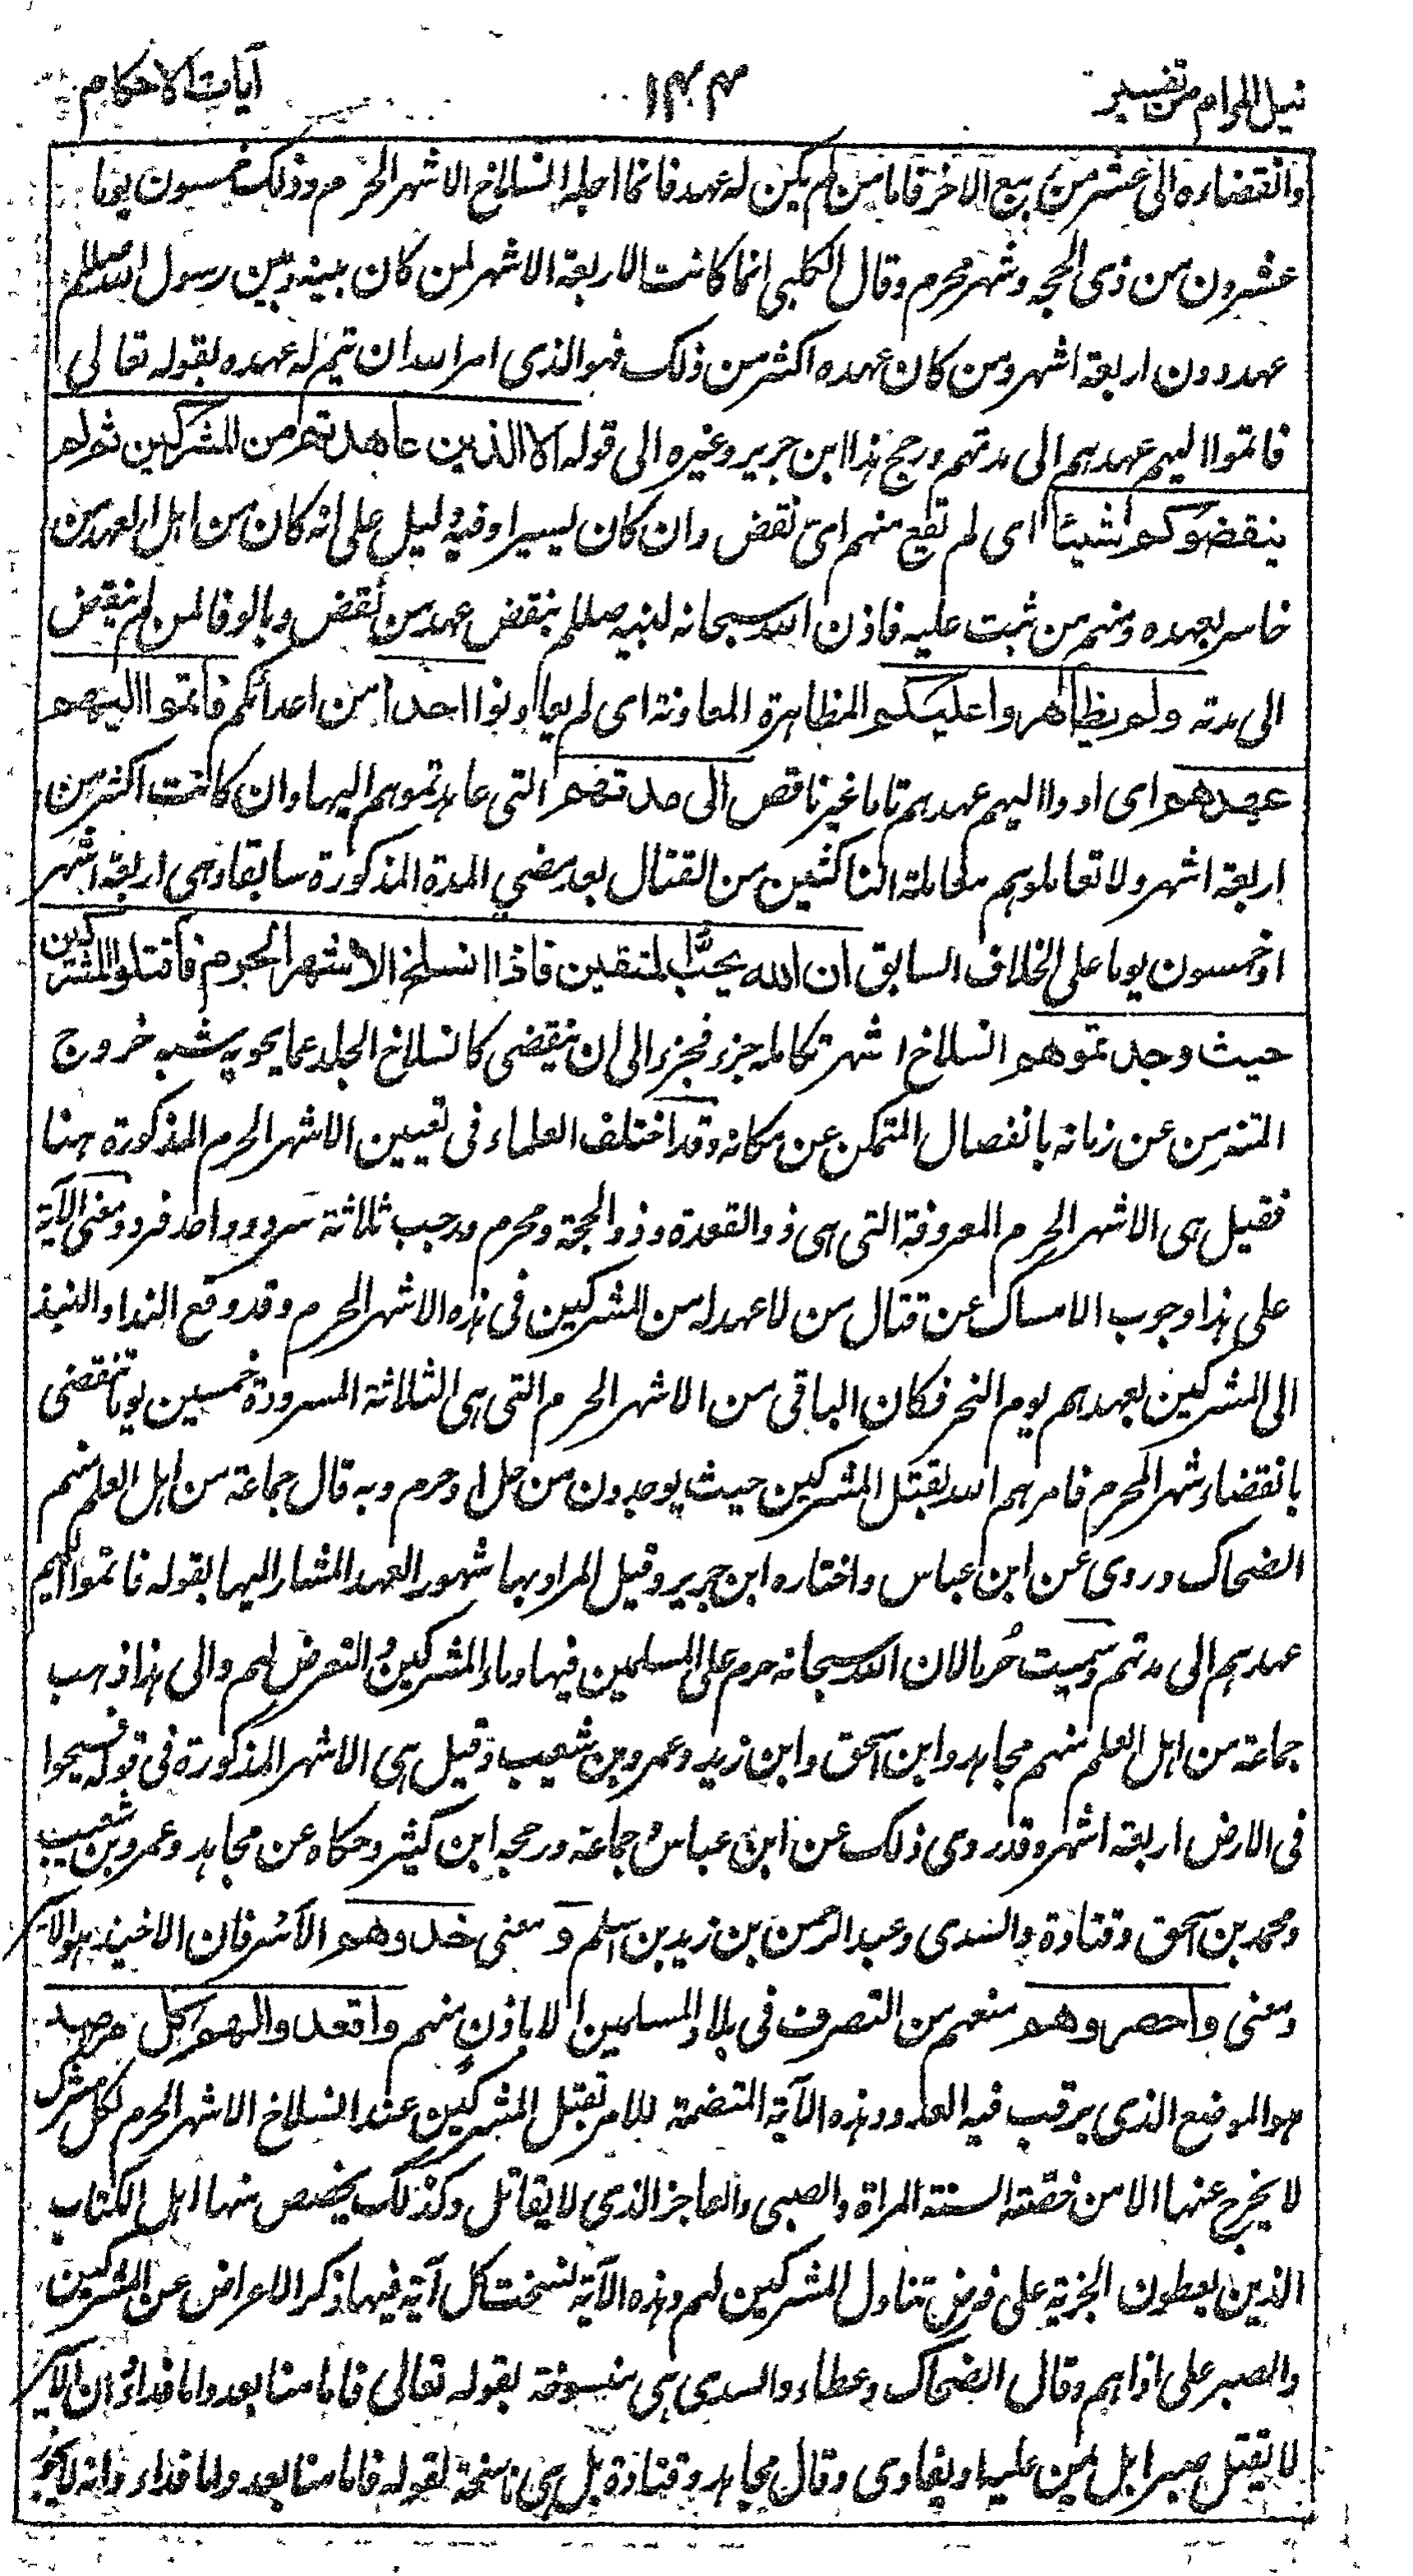 نيل المرام من تفسير ١٤٤ آيات الاحكام
وانقضاءه الى عشر من ربيع الاخر فاما من لم يكن له عهد فانما اجله انسلاخ الاشهر الحرم وذلك خمسون يوما
عشرون من ذى الحجه وشهر محرم وقال الكلبى انما كانت الاربعة الاشهر لمن كان بينه وبين رسول الله صلعم
عهد دون اربعة اشهر ومن كان عهده اكثر من ذلك فهو الذى امر الله ان يتم له عهده بقوله تعالى
فاتموا اليهم عهدهم الى مدتهم ورجح هذا ابن جرير وغيره الى قوله الا الذين عاهدتم من المشركين ثم لم
ينقضوكم شيئا اى لم يقع منهم اىّ نقض وان كان يسيرا وفيه دليل على انه كان من اهل العهد من
خاس بعهده ومنهم من ثبت عليه فاذن الله سبحانه لنبيه صللم بنقض عهد من نقض وبالوفا لمن لم ينقض
الى مدته ولم يظاهروا عليكم المظاهرة المعاونة اى لم يعاونوا احدا من اعدائكم فاتموا اليهم
عهدهم اى ادوا اليهم عهدهم تاما غير ناقص الى مدتهم التى عاهدتموهم اليها وان كانت اكثر من
اربعة اشهر ولا تعاملوهم معاملة الناكثين من القتال بعد مضي المدة المذكورة سابقا وهى اربعة اشهر
او خمسون يوما على الخلاف السابق ان الله يحبّ المتقين فاذا انسلخ الاشهر الحرم فاقتلوا المشركين
حيث وجدتموهم انسلاخ اشهر تكامله جزء فجزء الى ان ينقضى كانسلاخ الجلد عما يحويه شبه خروج
المتزمن عن زمانه بانفصال المتمكن عن مكانه وقد اختلف العلماء فى تعيين الاشهر الحرم المذكورة ههنا
فقيل هى الاشهر الحرم المعروفة التى هى ذو القعدة وذو الحجة ومحرم ورجب ثلاثة سرد وواحد فرد ومعنى الآية
على هذا وجوب الامساك عن قتال من لا عهد له من المشركين فى هذه الاشهر الحرم وقد وقع الندا والنبذ
الى المشركين بعهدهم يوم النحر فكان الباقى من الاشهر الحرم التى هى الثلاثة المسرودة خمسين يوما تنقضى
بانقضاء شهر المحرم فامرهم الله بقتل المشركين حيث يوجدون من حل او حرم وبه قال جماعة من اهل العلم منهم
الضحاك وروى عن ابن عباس واختاره ابن جرير وقيل المراد بها شهور العهد المشار اليها بقوله فاتموا اليهم
عهدهم الى مدتهم وسميت حُرما لان الله سبحانه حرم على المسلمين فيها دماء المشركين والتعرض لهم والى هذا ذهب
جماعة من اهل العلم منهم مجاهد وابن اسحق وابن زيد وعمرو بن شعيب وقيل هى الاشهر المذكورة فى قوله فسيحوا
فى الارض اربعة اشهر وقد روى ذلك عن ابن عباس وجماعة ورجحه ابن كثير وحكاه عن مجاهد وعمرو بن شعيب
ومحمد بن اسحق وقتادة والسدى وعبد الرحمن بن زيد بن اسلم ومعنى خذوهم الاسر فان الاخيذ هو الاسير
ومعنى واحصروهم منعهم من التصرف فى بلاد المسلمين الا باذن منهم واقعدوا لهم كل مرصد
هو الموضع الذى يرقب فيه العدو وهذه الآية المتضمنة للامر بقتل المشركين عند انسلاخ الاشهر الحرم لكل مشرك
لا يخرج عنها الا من خصّته السنة المراة والصبى والعاجز الذى لا يقاتل وكذلك يخصص منها اهل الكتاب
الذين يعطون الجزية على فرض تناول المشركين لهم وهذه الآية نسخت كل آية فيها ذكر الاعراض عن المشركين
والصبر على اذاهم وقال الضحاك وعطاء والسدى هى منسوخة بقوله تعالى فاما منا بعد واما فداء وان الاسير
لا يقتل صبرا بل يمن عليه او يفادى وقال مجاهد وقتادة بل هى ناسخة لقوله فاما منا بعد واما فداء وانه لا يجوز